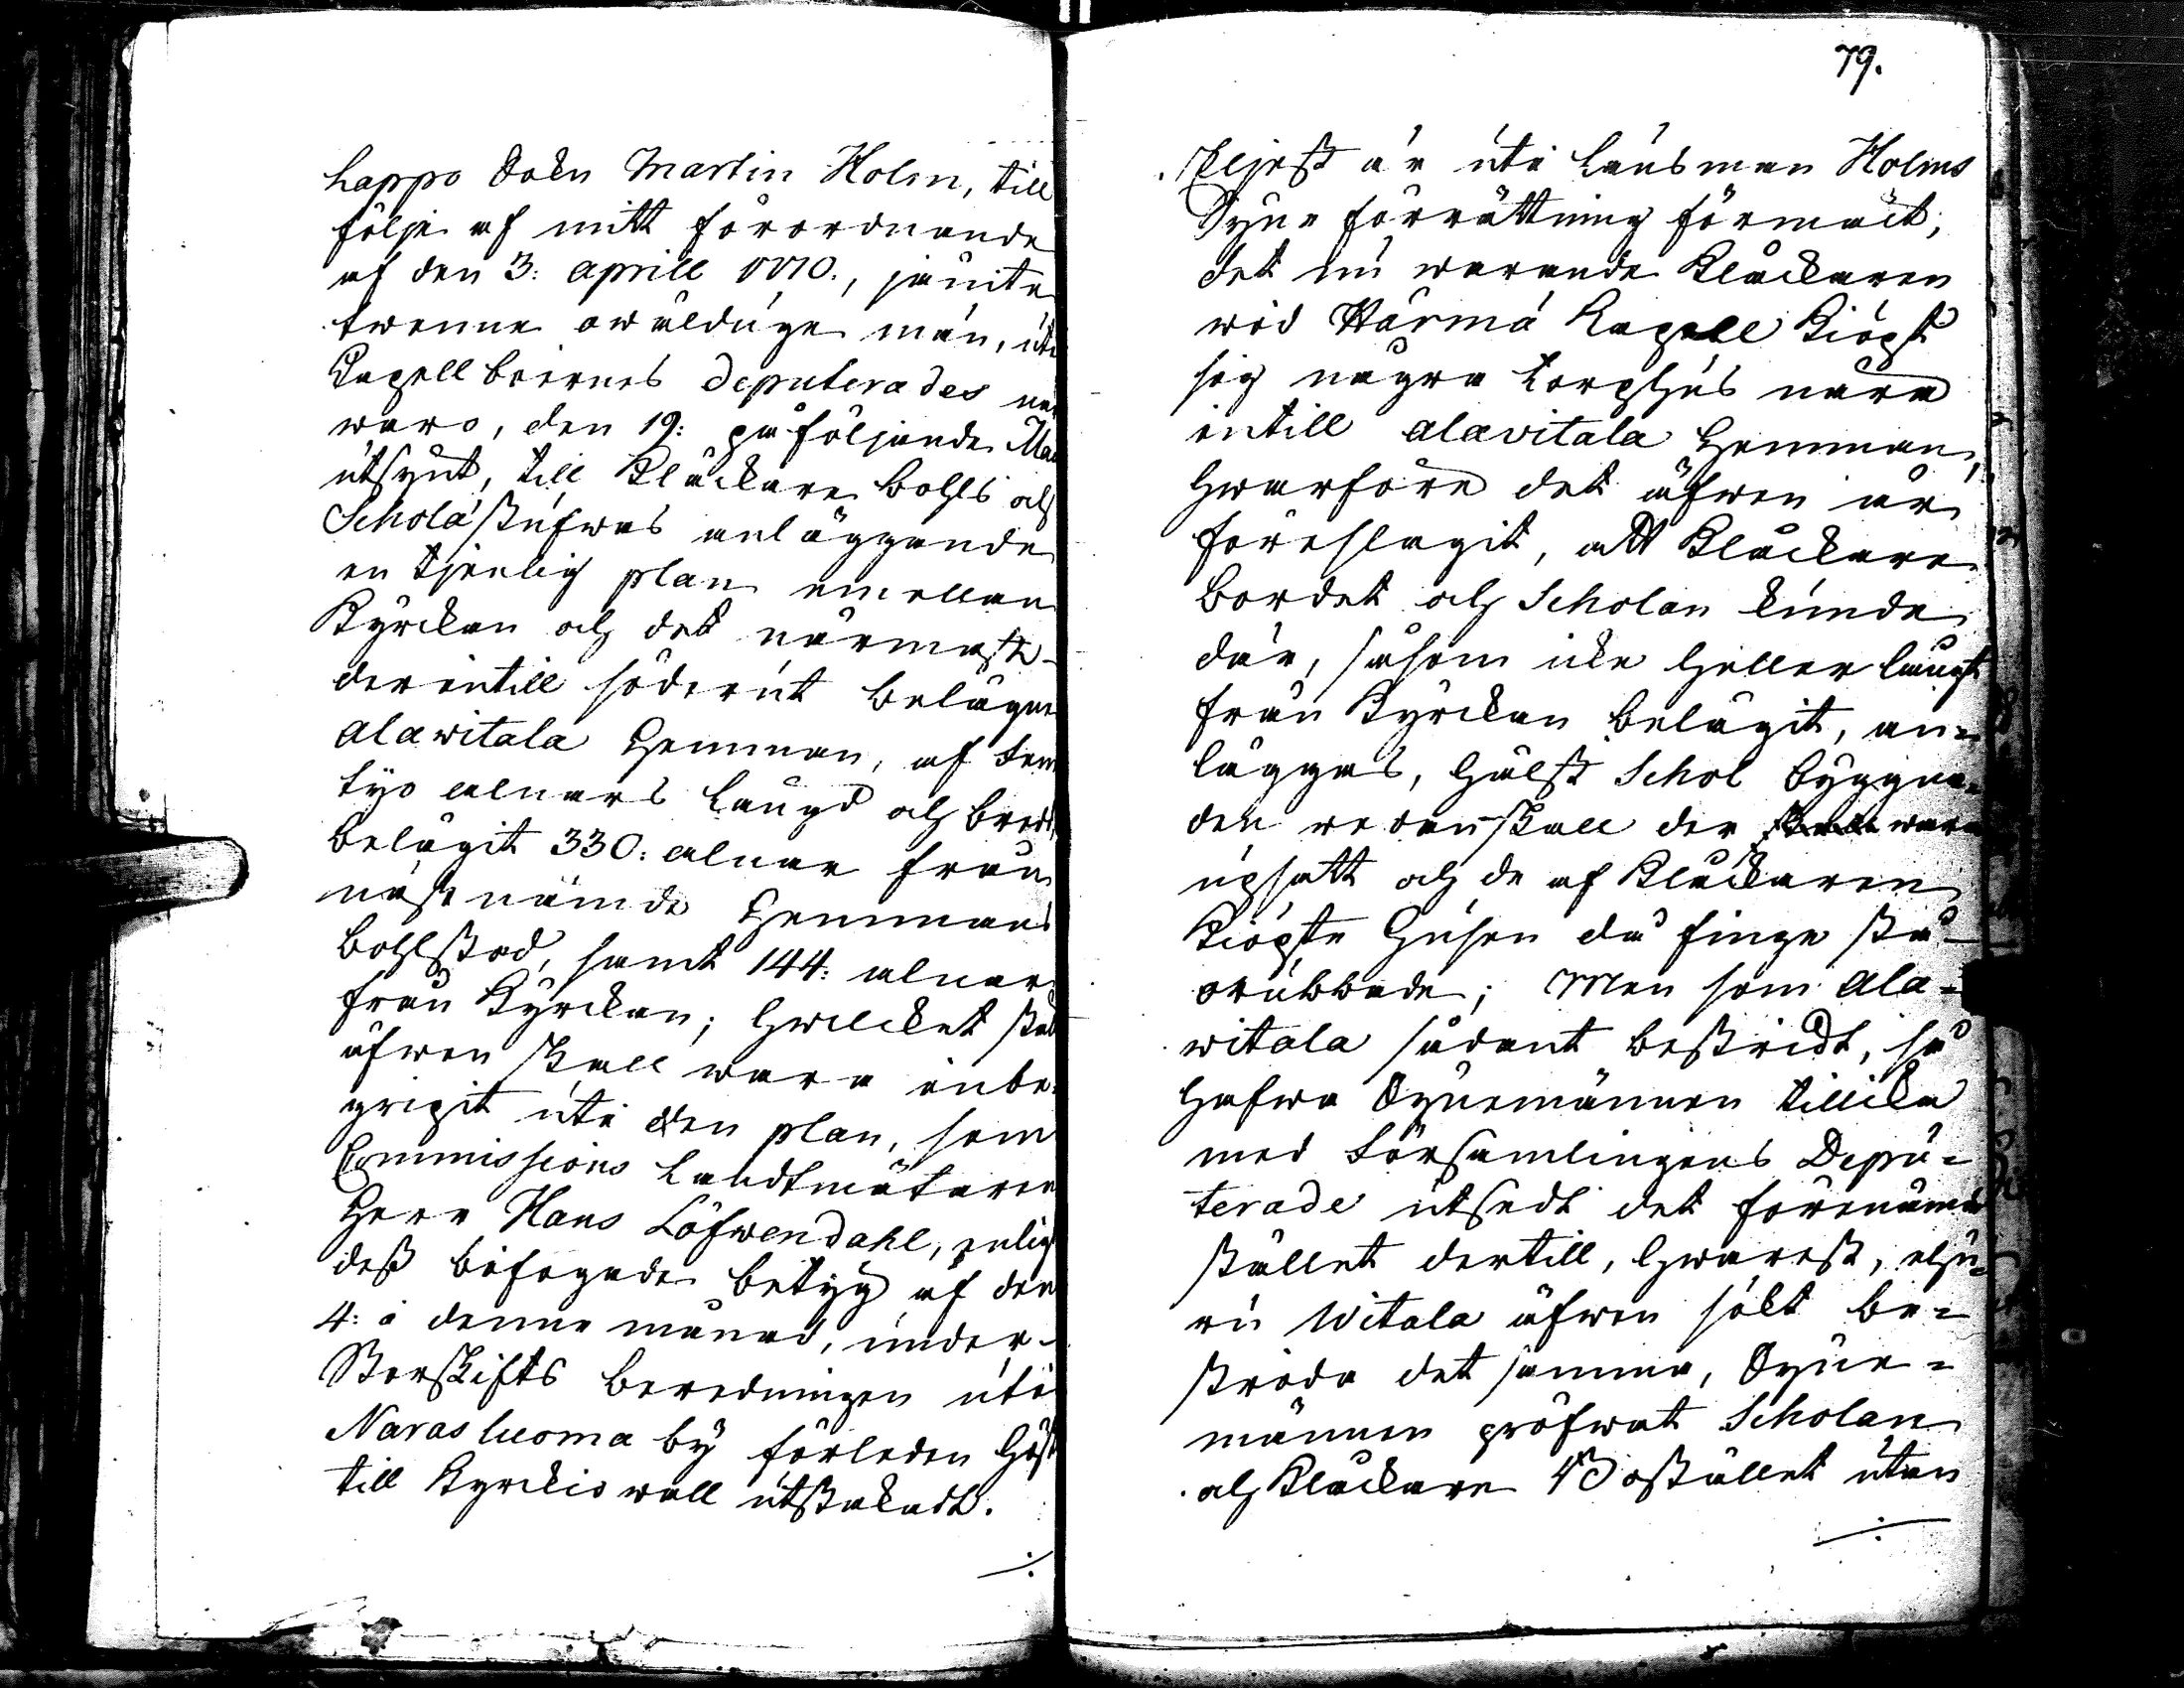 happo Sokn Martin Holm, till
följe af mitt förordnande
af den 3: aprill 1770., jämte
twenne owäldige män, uti
Capell boernes deputerades när
waro, den 19: påföljande Maii
utsynt, till Klåckare bohls och
Scholæstufwas anläggande
en tjenlig plan emellan
Kyrckan och det närmast
derintill söderut belägne
alawitala Hemman, af fem
tijo alnars längd och bredd,
belägit 330: alnar från
nästnämde Hemmans
bohlstad, samt 144: alnar
från Kyrckan; hwilcket stäl
äfwen skall wara inbe-
gripit uti den plan, som
Commissions Landtmätaren
Herr Hans Löfwendahl, enligt
dess bifogade betyg af den
4: i denne månad, under
Storskifts beredningen uti
Narasluoma by förleden höst
till Kyrckio wall utstakadt.
79.
Eljest är uti Länsman Holms
Syne förrättning förmält,
det nu warande Klåckaren
wid Härmä Capell Kiöpt
sig några torphus nära
intill alavitala Hemman,
hwarföre det äfwen är
föreslagit, att Klåckare
bordet och Scholan kunde
där, såsom icke heller långt
från Kyrckan belägit, an-
läggas, hälst Schol byggna-
den redan skall der wara
upsatt och de af Klåckaren
Kiöpte husen då finge stå
orubbade; Men som Ala-
witala sådant bestridt, så
hafwa Synemännen tillika
med Församlingens Depu-
terade utsedt det förenämde
stället dertill, hwarest, ehu-
ru Witala äfwen sökt be-
strida det samma, Syne-
männen pröfwat Scholan
och Klåckare Bostället utan